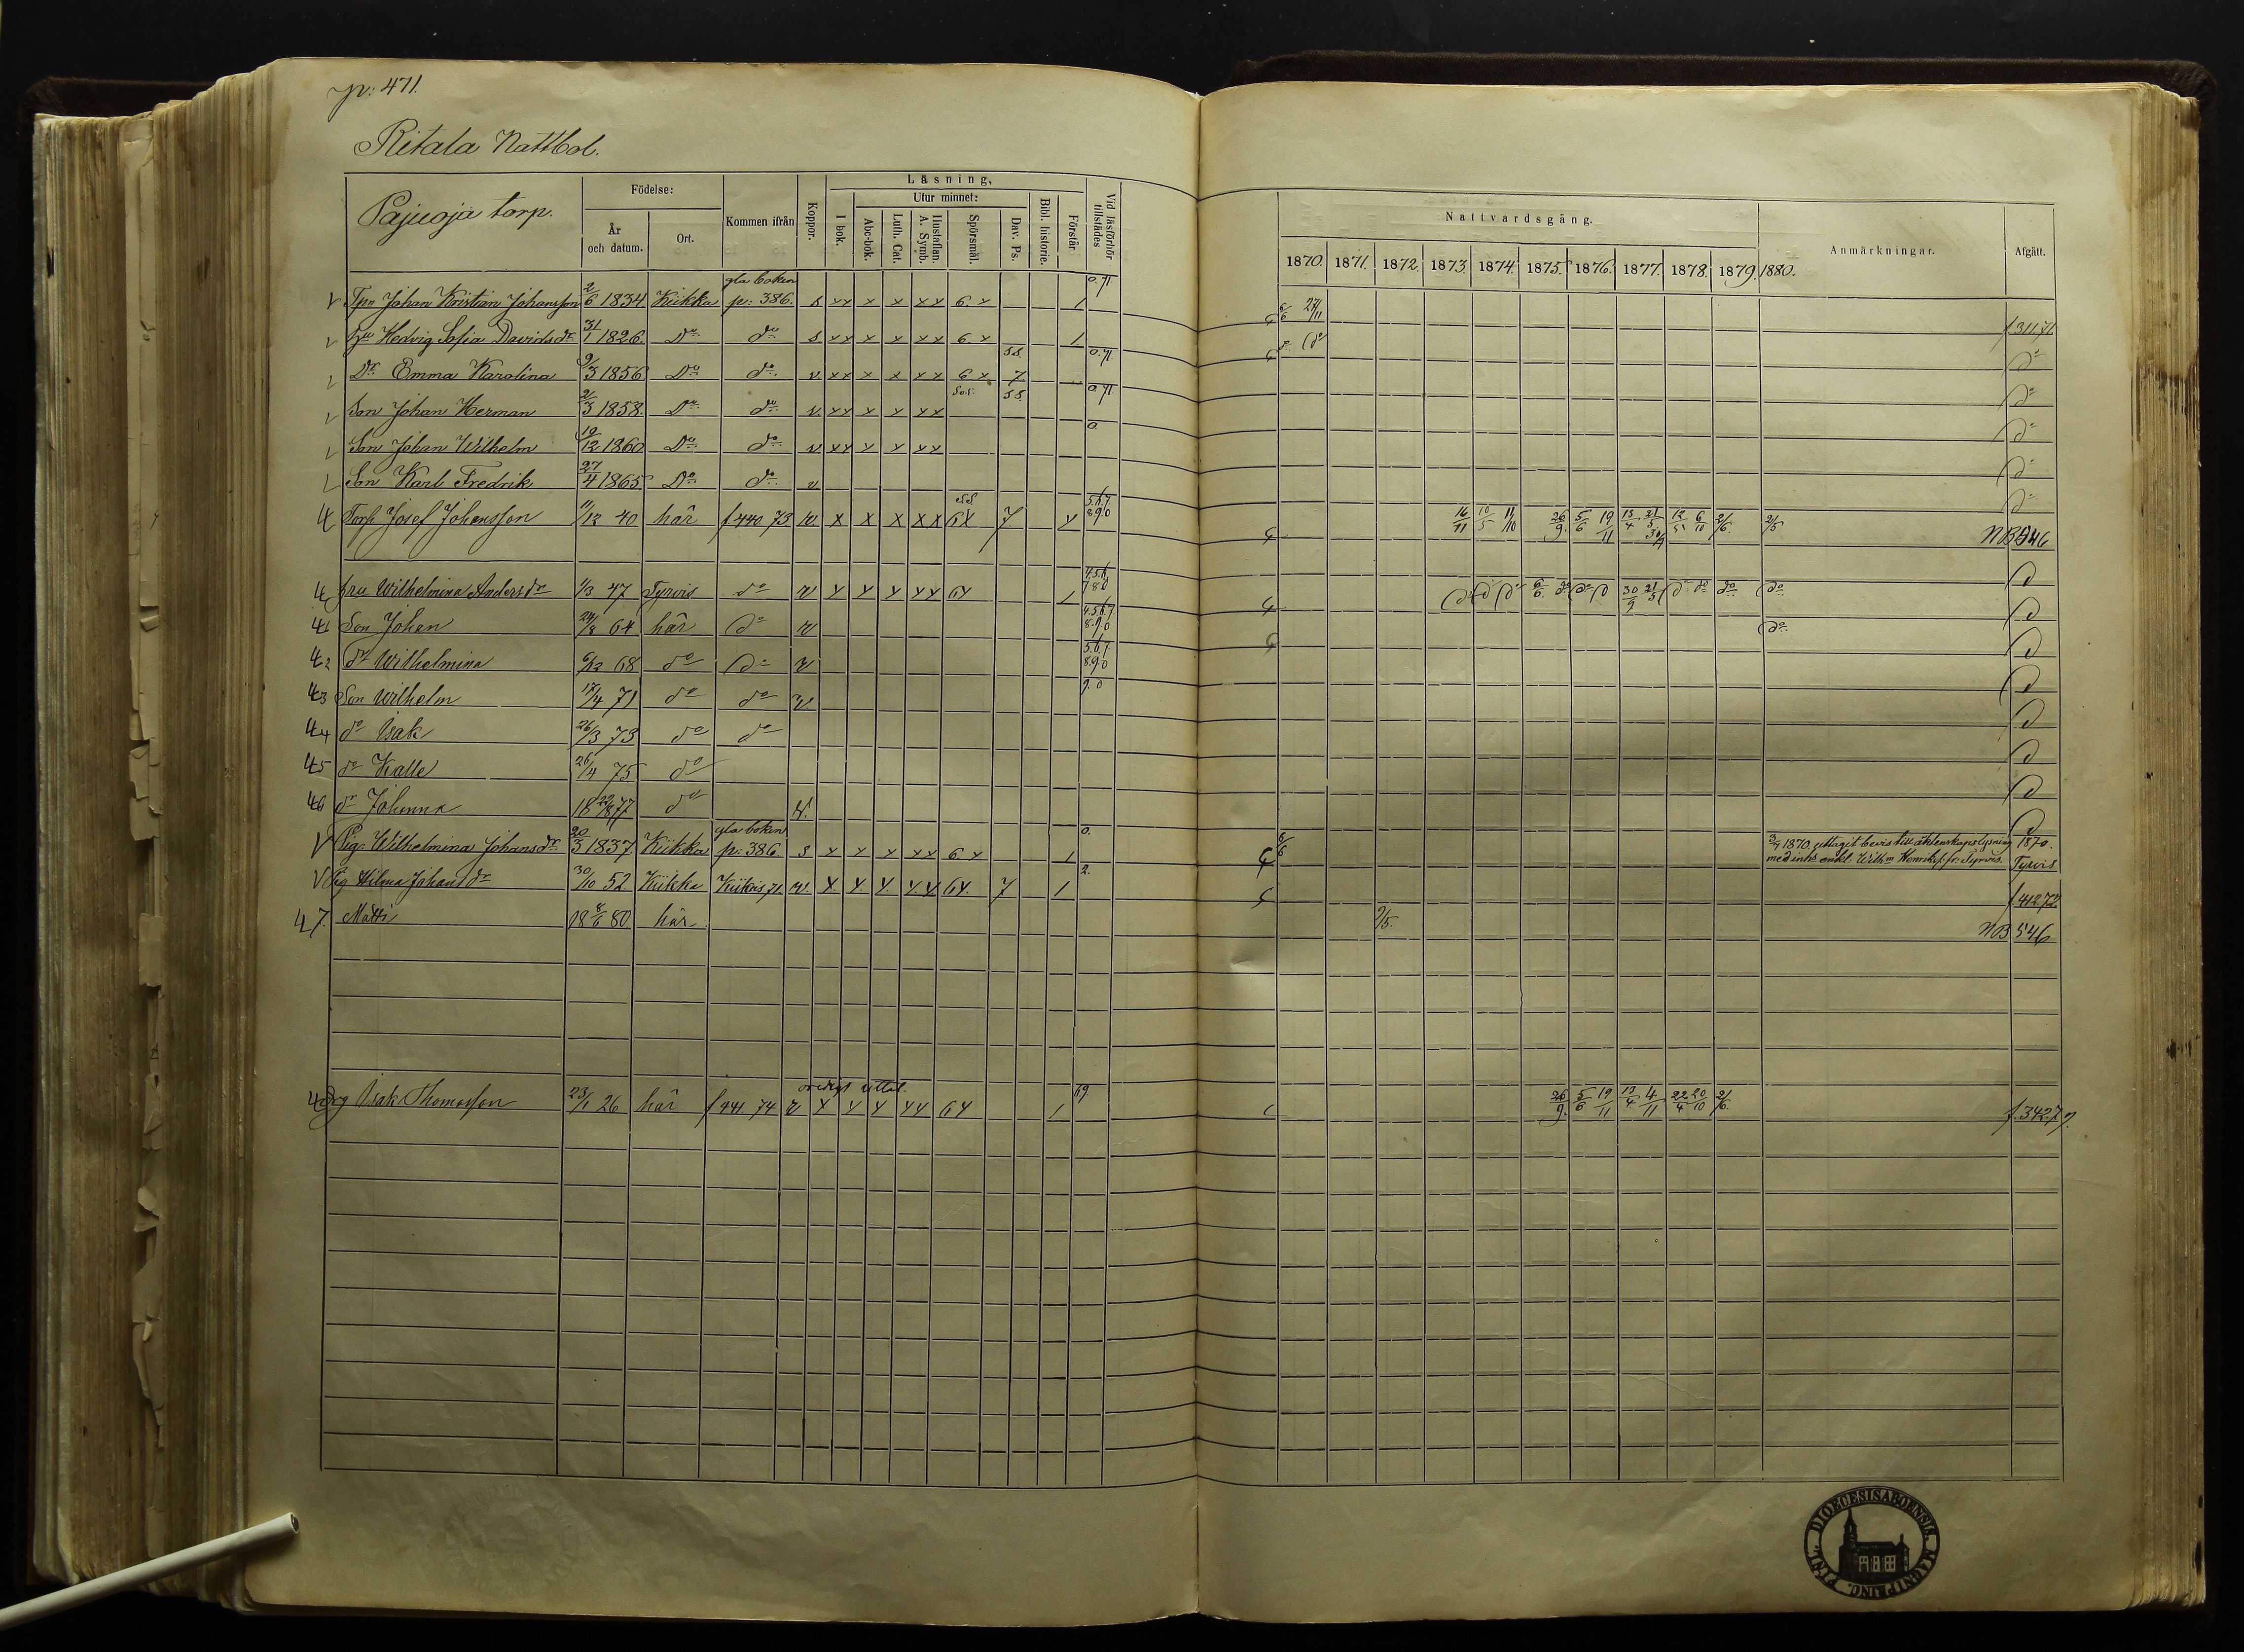 p: 471.
Ritala Nattbol.
Pajuoja torp.
Födelse:
År och datum.
Ort.
Kommen ifrån
Koppor.
Läsning,
I bok.
Utur minnet:
Abc-bok.
Luth. Cat.
Hustaflan. A. Symb.
Spörsmål.
Dav. Ps.
Bibl. historie.
Förstår
Vid läsförhör tillstädes
Nattvardsgång.
1870. 1871. 1872. 1873. 1874. 1875. 1876. 1877. 1878. 1879. 1880.
Anmärkningar.
Afgått.
gla boken
Tpn Johan Kristian Johansson 2/6 1834 Kiikka p: 386. s xx x x xx 6. x 1 0.71 6/6 27/11 f 311.71
Hu Hedvig Sofia Davidsdr 31/1 1826. Do do s xx x x xx 6 x 1 do
Dr Emma Karolina 9/3 1856 Do do v xx x x xx 6 x 7 0.71 do
Son Johan Herman 2/3 1858. Do do v. xx x x xx 0.71 do
Son Johan Wilhelm 19/12 1860 Do do v xx x x xx 0 do
Son Karl Fredrik 27/4 1865. Do do v do
Torp. Josef Johansson 11/12 40 här f 440 73 v x x x xx 6x 7 5.6.7 8.9.0 16/11 10/5 11/10 26/9. 5/6 19/11 15/4 21/5 30/9 12/5 6/10 2/6. 2/5 NB 546
fru Wilhelmina Andersdr 1/3 47 Tyrvis do v x x x xx 6x 1 4.5.6 7.8.0 6/6 do 30/9 21/5 do do do
Son Johan 24/8 64 här do v 4.5.6.7 8.9.0 do
dr Wilhelmina 6/12 68 do do v 5.6.7. 8.9.0
Son Wilhelm 17/4 71 do do v 9.0
do Isak 26/3 73 do do
do Kalle 26/4 75 do
dr Johanna 18 22/8 77 do v.
gla boken
Pig. Wilhelmina Johansdr 20/3 1837 Kiikka p: 386 s x x x xx 6 x 1 0. 6/6 3/9 1870 uttagit bevis till äktenskapslysning 1870.
med enkl. Wilh:m fr. Tyrvis. Tyrvis
Pig Hilma Johansdr 30/10 52 Kiikka Kiikois 71 v. x x. x x.x 6x. 7 1 2. f 412 72
47. Matti 18 8/6 80 här 9/5. NB 546
Drg Isak Thomasson 23/1 26 här f 441 74 v x x x xx 6x 1 6.9. 26/9. 5/6 19/11 13/4 4/11 22/4 20/10 2/6. f. 342.79.
DIOECESIS ABOENSIS. MAGNI PRINC. FINL.